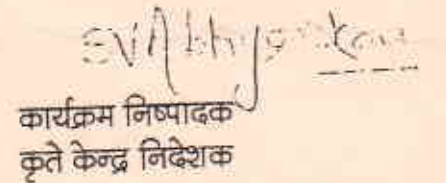 कार्यक्रम निष्पादक
कृते केन्द्र निदेशक